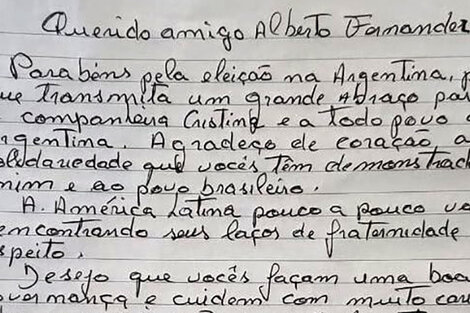 Querido amigo Alberto Fernandez
Parabéns pela eleição na Argentina, p
ue transmita um grande abraço par
companheira Cristina e a todo povo d
rgentina. Agradeço de coração a
olidariedade que vocês têm demonstrad
mim e ao povo brasileiro.
A. América Latina pouco a pouco va
encontrando seus laços de fraternidade
speito.
Desejo que vocês façam uma boa
overnança e cuidem com muito cari